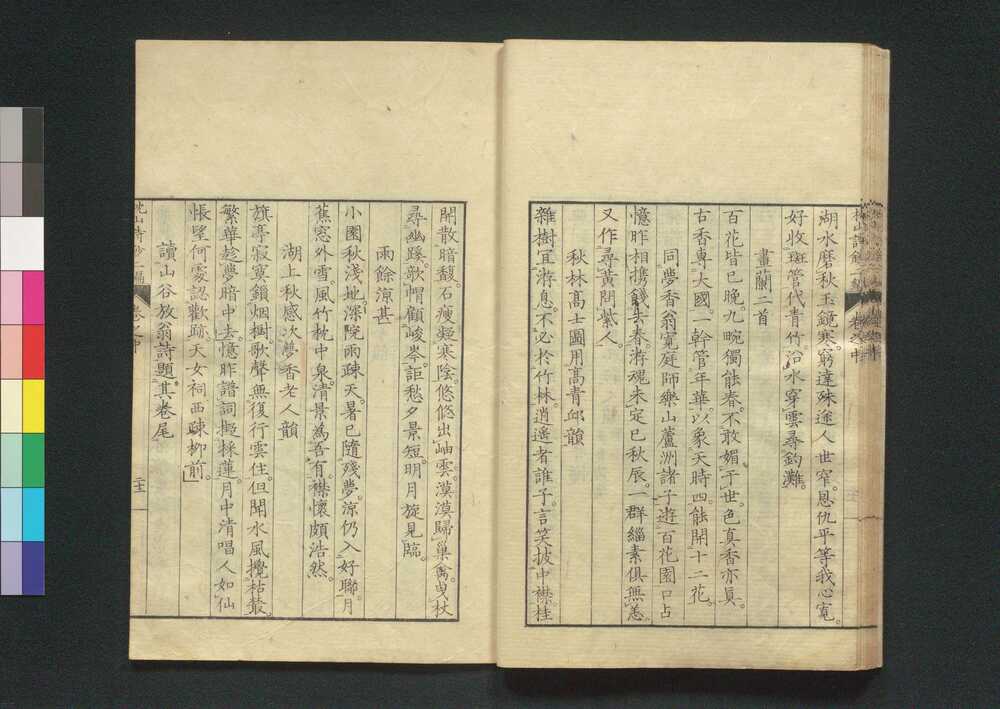 湖水磨秋玉鏡寒。窮達殊途人世窄。恩仇平等我心寬。
好收斑管代青竹。沿水穿雲尋釣灘。
畫蘭二首
百花皆已晚。九畹獨能春。不敢媚于世。色真香亦眞。
古香專大國。一幹管年華。以象天時四。能開十二花。
同夢香翁寬庭師樂山蘆洲諸子遊百花園口占
憶昨相携餞去春。游魂未定已秋辰。一群緇素俱無恙。
又作尋黃問紫人。
秋林高士圖用高青邱韻
雜樹宜游息。不必於竹林。逍遙者誰子。言笑披巾襟。桂
開散暗馥。石瘦凝寒陰。悠悠出岫雲。漠漠歸巢禽。曳杖
尋幽蹊。欹帽顧峻岑。詎愁夕景短。明月旋見臨。
雨餘涼甚
小園秋淺地。深院雨疎天。暑已隨殘夢。涼仍入好聯。月
蕉窓外雪。風竹枕中泉。清景爲吾有。襟懷頗浩然。
湖上秋感次夢香老人韻
旗亭寂寞鎖烟樹。歌聲無復行雲住。但聞水風攪枯叢。
繁華趁夢暗中去。憶昨譜詞擬採蓮。月中清唱人如仙
悵望何處認歡跡。天女祠西疎栁前。
讀山谷放翁詩題其卷尾
卷之中